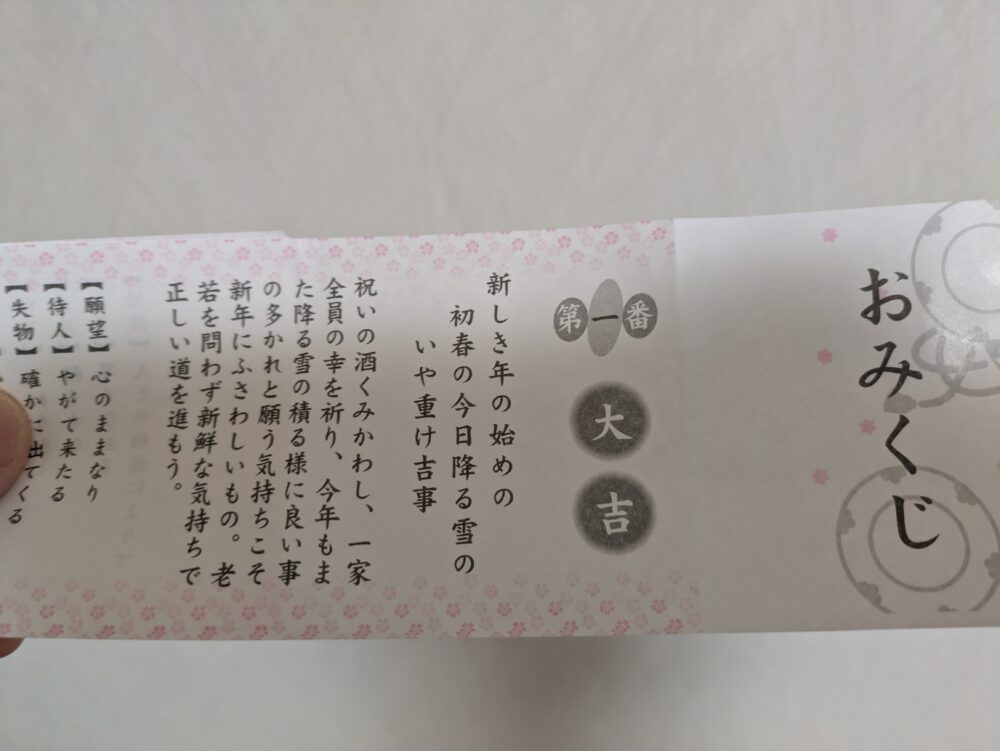 おみくじ
第一番
大吉
新しき年の始めの
初春の今日降る雪の
いや重け吉事
祝いの酒くみかわし、一家
全員の幸を祈り、今年もま
た降る雪の積る様に良い事
の多かれと願う気持ちこそ
新年にふさわしいもの。老
若を問わず新鮮な気持ちで
正しい道を進もう。
【願望】心のままなり
【待人】やがて来たる
【失物】確かに出てくる